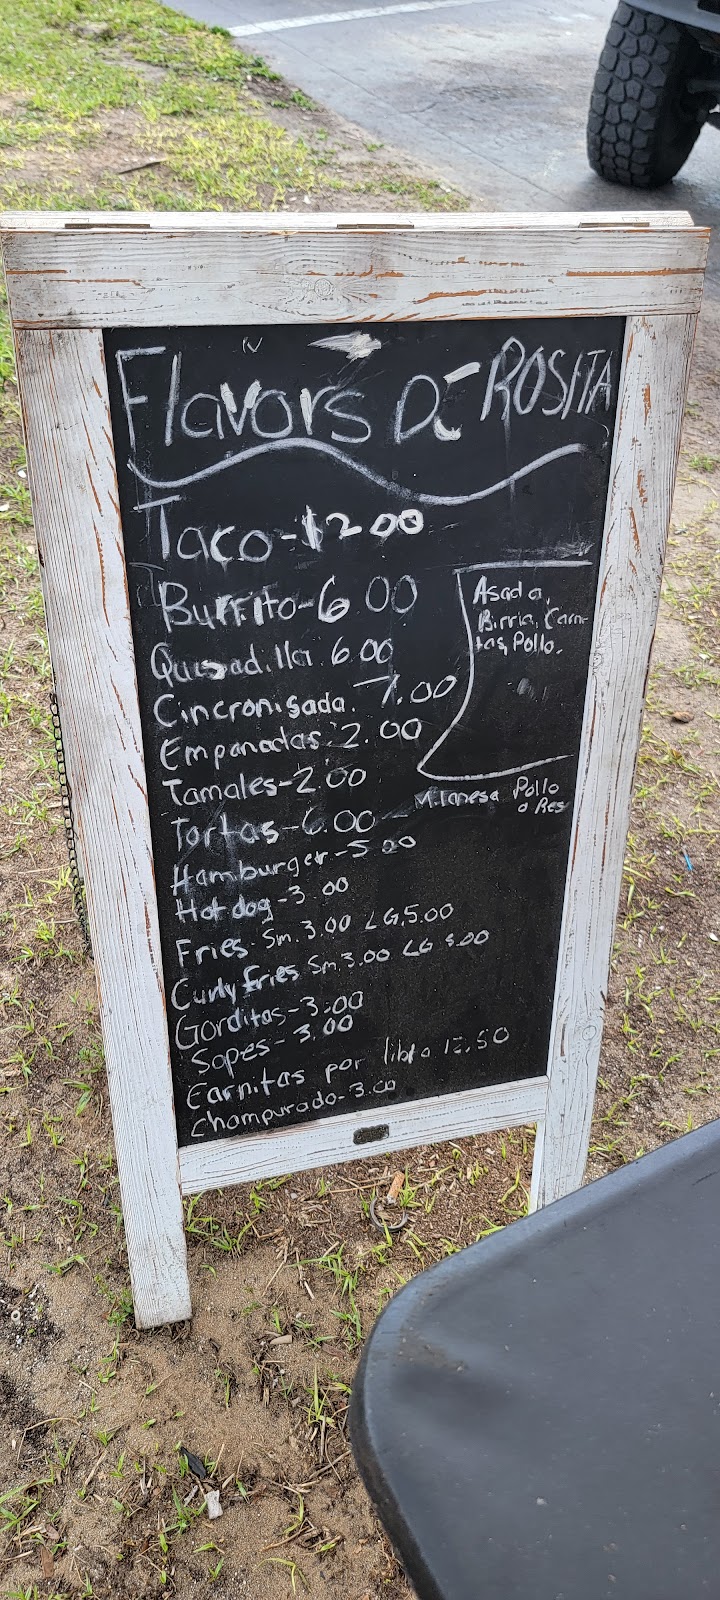 Flavors DE ROSITA
Taco-$2.00
Burrito-6.00
Asada,
Birria, Carni-
tas, Pollo.
Quesadilla. 6.00
Cincronisada. 7.00
Empanadas 2.00
Tamales-2.00
Tortas-6.00 - Milanesa Pollo
o Res
Hamburger-5.00
Hot dog-3.00
Fries- Sm. 3.00 LG,5.00
Curly Fries Sm,3.00 LG 5.00
Gorditas-3.00
Sopes-3.00
Carnitas por libra 12.50
Champurado-3.00